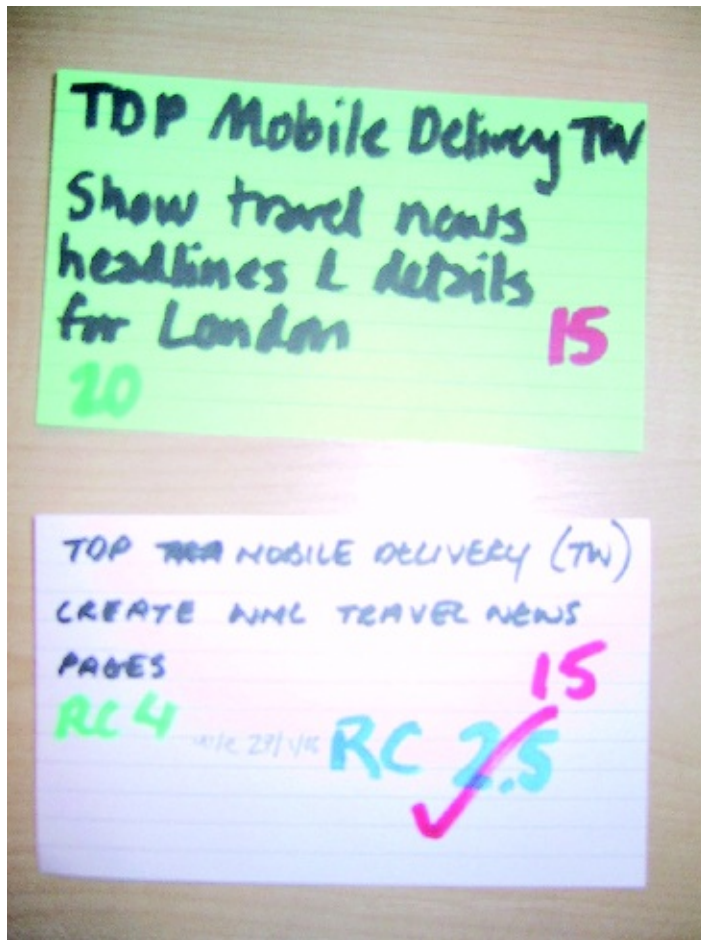 TOP Mobile Delivery TW
Show travel news
headlines & details
for London
15
20
TOP MOBILE DELIVERY (TW)
CREATE WML TRAVEL NEWS
PAGES
15
RC 4
RC 2.5